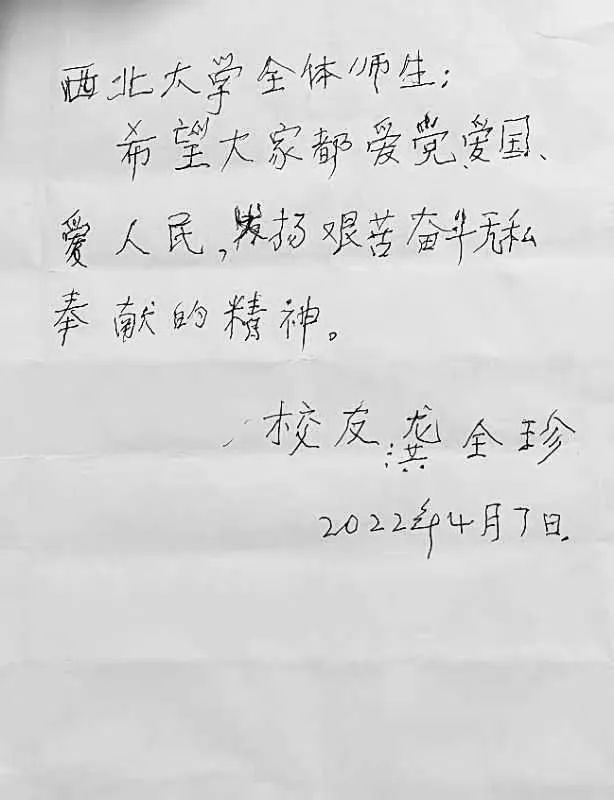 西北大学全体师生：
希望大家都爱党、爱国、
爱人民，发扬艰苦奋斗无私
奉献的精神。
校友 龚全珍
2022年4月7日.